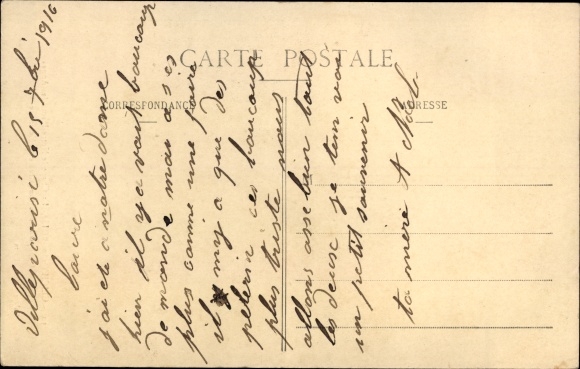 CARTE POSTALE
CORRESPONDANCE
ADRESSE
le 15 7bre 1916
j'ai été a notre dame
hier il y a vait baucoup
de monde mais a ses
plus comme une foire
il n'y a que des
pelerin ces baucoup
plus triste nous
allons asse bien tout
les deux je tem voi
un petit souvenir
ta mere A